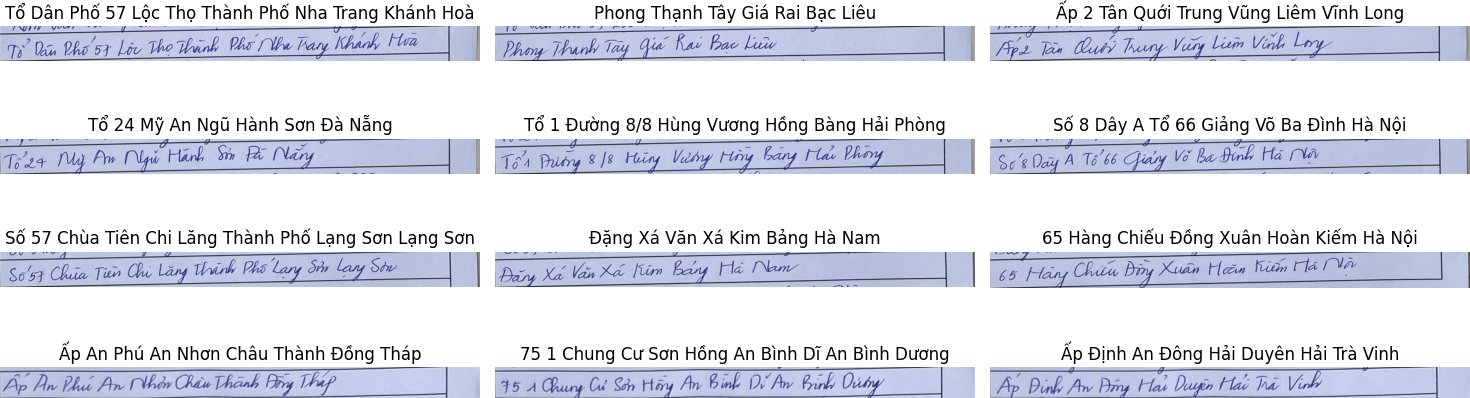 Tổ Dân Phố 57 Lộc Thọ Thành Phố Nha Trang Khánh Hoà
Tổ Dân Phố 57 Lộc Thọ Thành Phố Nha Trang Khánh Hoà
Phong Thạnh Tây Giá Rai Bạc Liêu
Phong Thạnh Tây Giá Rai Bạc Liêu
Ấp 2 Tân Quới Trung Vũng Liêm Vĩnh Long
Ấp 2 Tân Quới Trung Vũng Liêm Vĩnh Long
Tổ 24 Mỹ An Ngũ Hành Sơn Đà Nẵng
Tổ 24 Mỹ An Ngũ Hành Sơn Đà Nẵng
Tổ 1 Đường 8/8 Hùng Vương Hồng Bàng Hải Phòng
Tổ 1 Đường 8/8 Hùng Vương Hồng Bàng Hải Phòng
Số 8 Dây A Tổ 66 Giảng Võ Ba Đình Hà Nội
Số 8 Dãy A Tổ 66 Giảng Võ Ba Đình Hà Nội
Số 57 Chùa Tiên Chi Lăng Thành Phố Lạng Sơn Lạng Sơn
Số 57 Chùa Tiên Chi Lăng Thành Phố Lạng Sơn Lạng Sơn
Đặng Xá Văn Xá Kim Bảng Hà Nam
Đặng Xá Văn Xá Kim Bảng Hà Nam
65 Hàng Chiếu Đồng Xuân Hoàn Kiếm Hà Nội
65 Hàng Chiếu Đồng Xuân Hoàn Kiếm Hà Nội
Ấp An Phú An Nhơn Châu Thành Đồng Tháp
Ấp An Phú An Nhơn Châu Thành Đồng Tháp
75 1 Chung Cư Sơn Hồng An Bình Dĩ An Bình Dương
75 1 Chung Cư Sơn Hồng An Bình Dĩ An Bình Dương
Ấp Định An Đông Hải Duyên Hải Trà Vinh
Ấp Định An Đông Hải Duyên Hải Trà Vinh